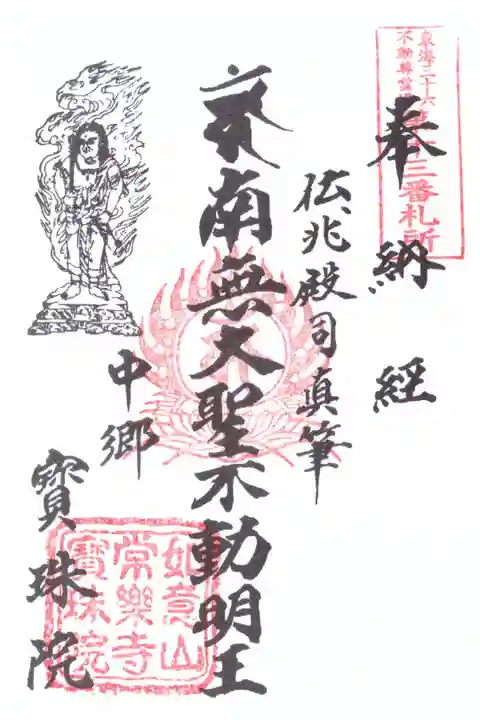 東海三十六
不動尊霊場
三番札所
奉納経
伝兆殿司真筆
南無大聖不動明王
中郷
寳珠院
如意山
常樂寺
寶珠院